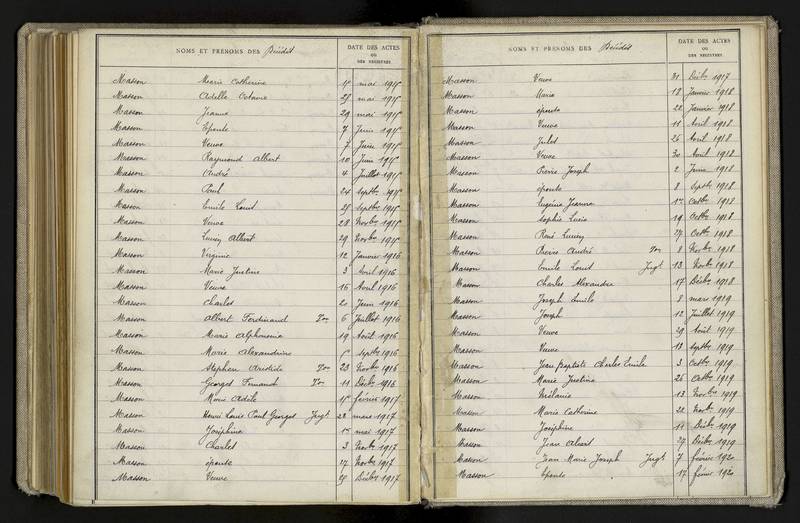 NOMS ET PRÉNOMS DES Décédés
DATE DES ACTES
OU
DES REGISTRES
Masson Marie Catherine 15 mai 1915
Masson Adelle Octavie 25 mai 1915
Masson Jeanne 29 mai 1915
Masson Epouse 7 Juin 1915
Masson Veuve 7 Juin 1915
Masson Raymond Albert 10 Juin 1915
Masson André 4 Juillet 1915
Masson Paul 24 Septbre 1915
Masson Emile Louis 25 Septbre 1915
Masson Veuve 28 Novbre 1915
Masson Lucien Albert 29 Novbre 1915
Masson Virginie 12 Janvier 1916
Masson Marie Justine 3 Avril 1916
Masson Veuve 16 Avril 1916
Masson Charles 20 Juin 1916
Masson Albert Ferdinand Ton 6 Juillet 1916
Masson Marie Alphonsine 19 Août 1916
Masson Marie Alexandrine Septbre 1916
Masson Stephen Aristide Ton 23 Novbre 1916
Masson Georges Fernand Ton 11 Décbre 1916
Masson Marie Adèle février 1917
Masson Henri Louis Paul Georges Jugt 28 mars 1917
Masson Joséphine mai 1917
Masson Charles 3 Novbre 1917
Masson épouse 27 Novbre 1917
Masson Veuve 25 Décbre 1917
NOMS ET PRÉNOMS DES Décédés
DATE DES ACTES
OU
DES REGISTRES
Masson Veuve 31 Décbre 1917
Masson Marie 18 Janvier 1918
Masson épouse 22 Janvier 1918
Masson Veuve 11 Avril 1918
Masson Jules 26 Avril 1918
Masson Veuve 30 Avril 1918
Masson Pierre Joseph 2 Juin 1918
Masson épouse 8 Septbre 1918
Masson Eugénie Jeanne Octbre 1918
Masson Sophie Lucie 19 Octbre 1918
Masson René Lucien 27 Octbre 1918
Masson Pierre André Ton 8 Novbre 1918
Masson Emile Louis Jugt 13 Novbre 1918
Masson Charles Alexandre 17 Décbre 1918
Masson Joseph Emile 8 mars 1919
Masson Joseph 12 Juillet 1919
Masson Veuve 29 Août 1919
Masson Veuve 13 Septbre 1919
Masson Jean Baptiste Charles Emile 3 Octbre 1919
Masson Marie Justine 26 Octbre 1919
Masson Mélanie 13 Novbre 1919
Masson Marie Catherine 22 Novbre 1919
Masson Joséphine 11 Décbre 1919
Masson Jean Albert 27 Décbre 1919
Masson Jean Marie Joseph Jugt 7 février 1920
Masson Epouse 17 février 1920